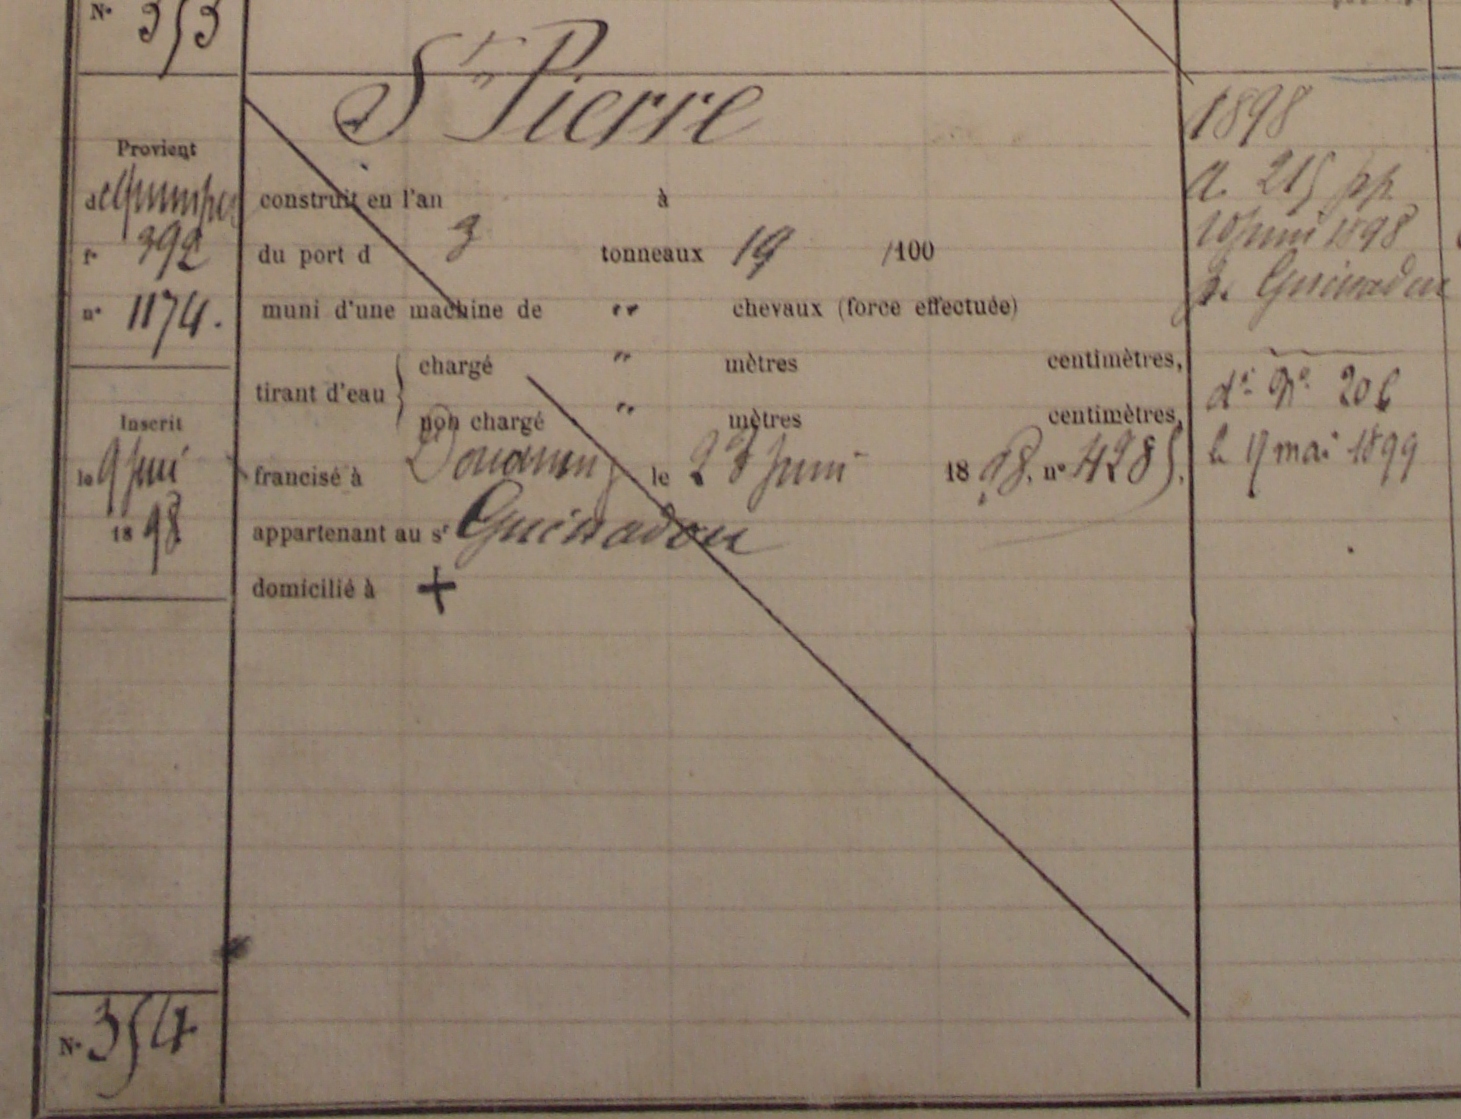 N° 353
St Pierre
Provient
de Quimper
f° 392
n° 1174.
construit en l'an à
du port d 3 tonneaux 19 /100
muni d'une machine de " chevaux (force effectuée)
tirant d'eau
chargé " mètres centimètres,
non chargé " mètres centimètres,
Inscrit
le 9 Juin
18 98
francisé à Douarnen le 23 Juin 18 98, n° 4285.
appartenant au sr
domicilié à +
N° 354
1898
a. 215 pp
10 Juin 1898
p.
dt N° 206
le 17 mai 1899